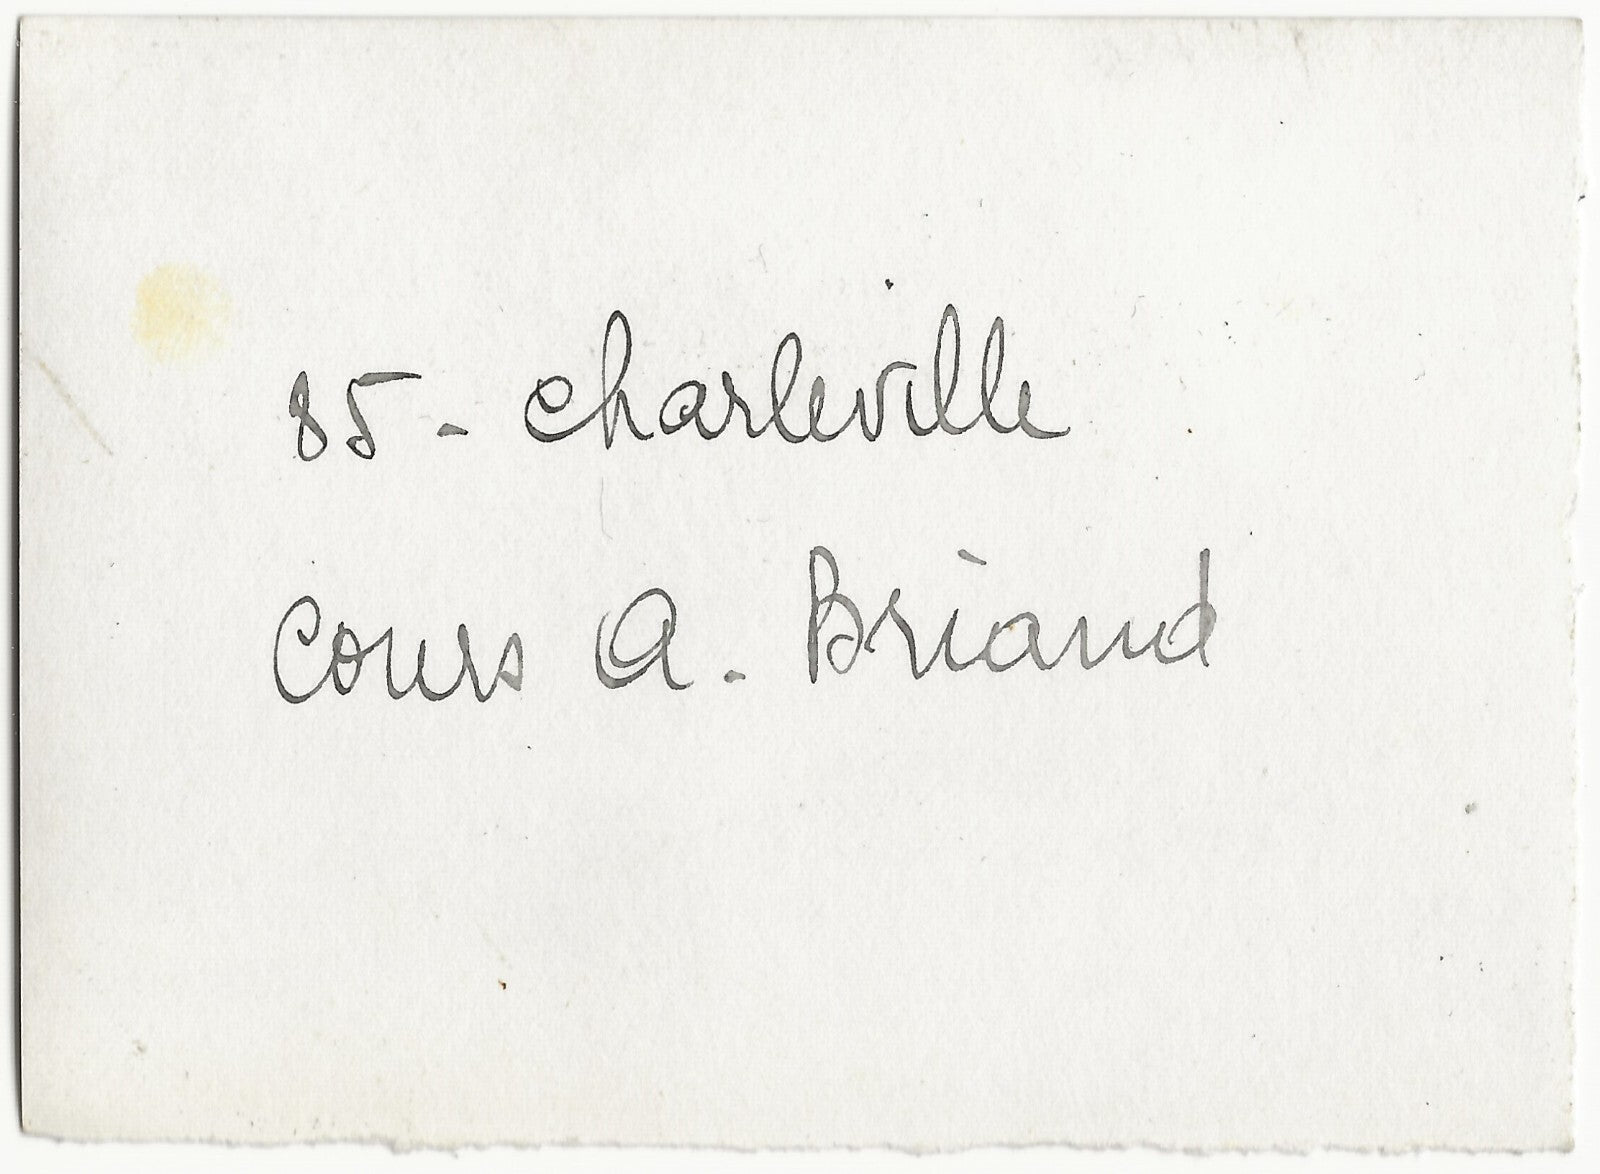 85 - Charleville
Cours A. Briand